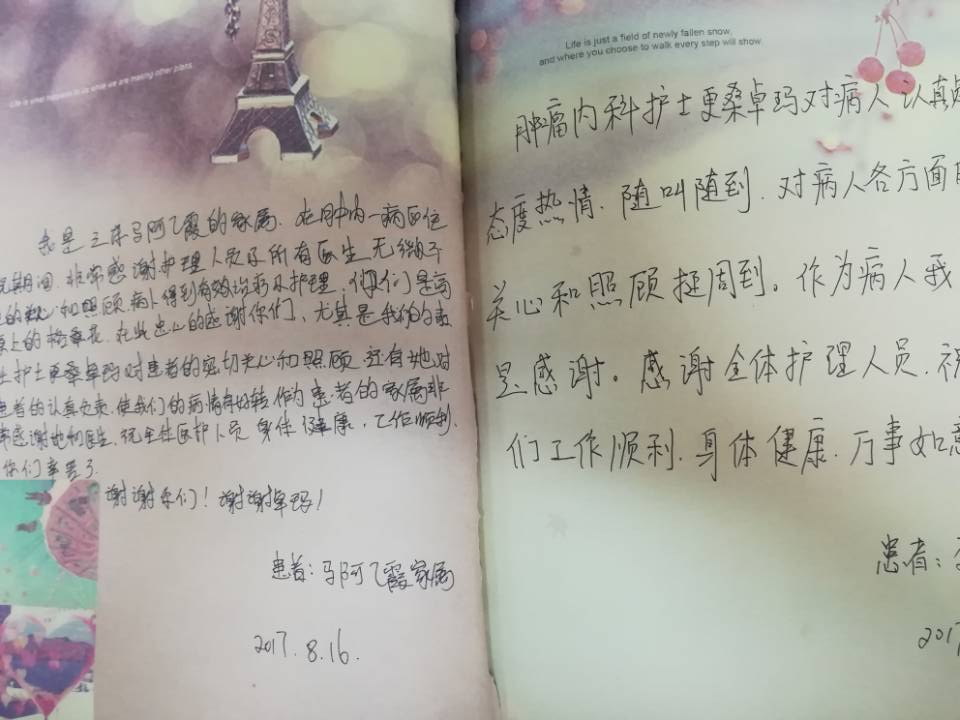 Life is what happens to us while we are making other plans.
我是三床马阿乙霞的家属.在肿内一病区住
院期间.非常感谢护理人员及所有医生无微不
的关心和照顾病人得到有效治疗及护理,你们是高
原上的格桑花.在此忠心的感谢你们、尤其是我们的责
护士更桑卓玛对患者的密切关心和照顾.还有她对
患者的认真负责.使我们的病情有好转作为患者的家属非
常感谢她和医生.祝全体医护人员身体健康,工作顺利.
你们辛苦了.
谢谢你们!谢谢卓玛!
患者:马阿乙霞家属
2017.8.16.
Life is just a field of newly fallen snow,
and where you choose to walk every step will show.
肿瘤内科护士更桑卓玛对病人认真
态度热情.随叫随到.对病人各方面
关心和照顾挺周到。作为病人我
是感谢。感谢全体护理人员.祝
们工作顺利.身体健康.万事如意
患者:
201